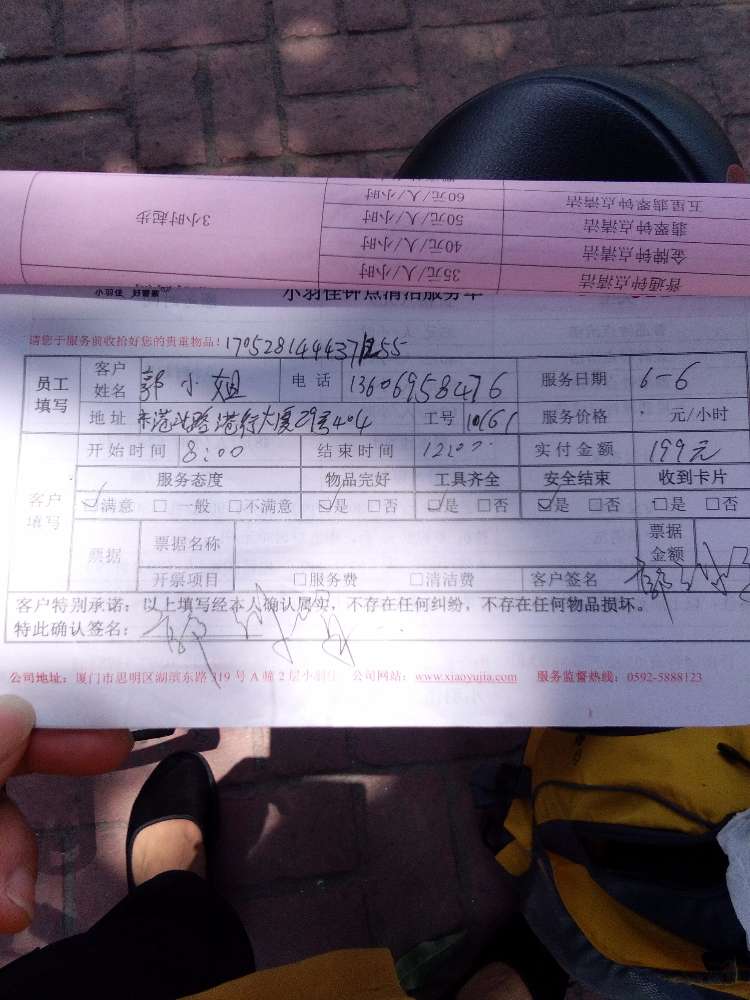 五星翡翠钟点清洁 60元/人/小时 3小时起步
翡翠钟点清洁 50元/人/小时
金牌钟点清洁 40元/人/小时
普通钟点清洁 35元/人/小时
小羽佳 好管家
小羽佳钟点清洁服务单
请您于服务前收拾好您的贵重物品!
员工填写 客户姓名 郭小姐 电话 13606958476 服务日期 6-6
地址 大厦29号404 工号 服务价格 元/小时
客户填写 开始时间 8:00 结束时间 12:00 实付金额 199元
服务态度 物品完好 工具齐全 安全结束 收到卡片
☑满意 □一般 □不满意 ☑是 □否 ☑是 □否 ☑是 □否 □是 □否
票据 票据名称 票据金额
开票项目 □服务费 □清洁费 客户签名
客户特别承诺：以上填写经本人确认属实，不存在任何纠纷，不存在任何物品损坏。
特此确认签名：
公司地址：厦门市思明区湖滨东路319号A幢2层小羽佳 公司网站：www.xiaoyujia.com 服务监督热线：0592-5888123